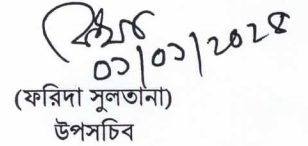 ০১/০১/২০২৪
(ফরিদা সুলতানা)
উপসচিব